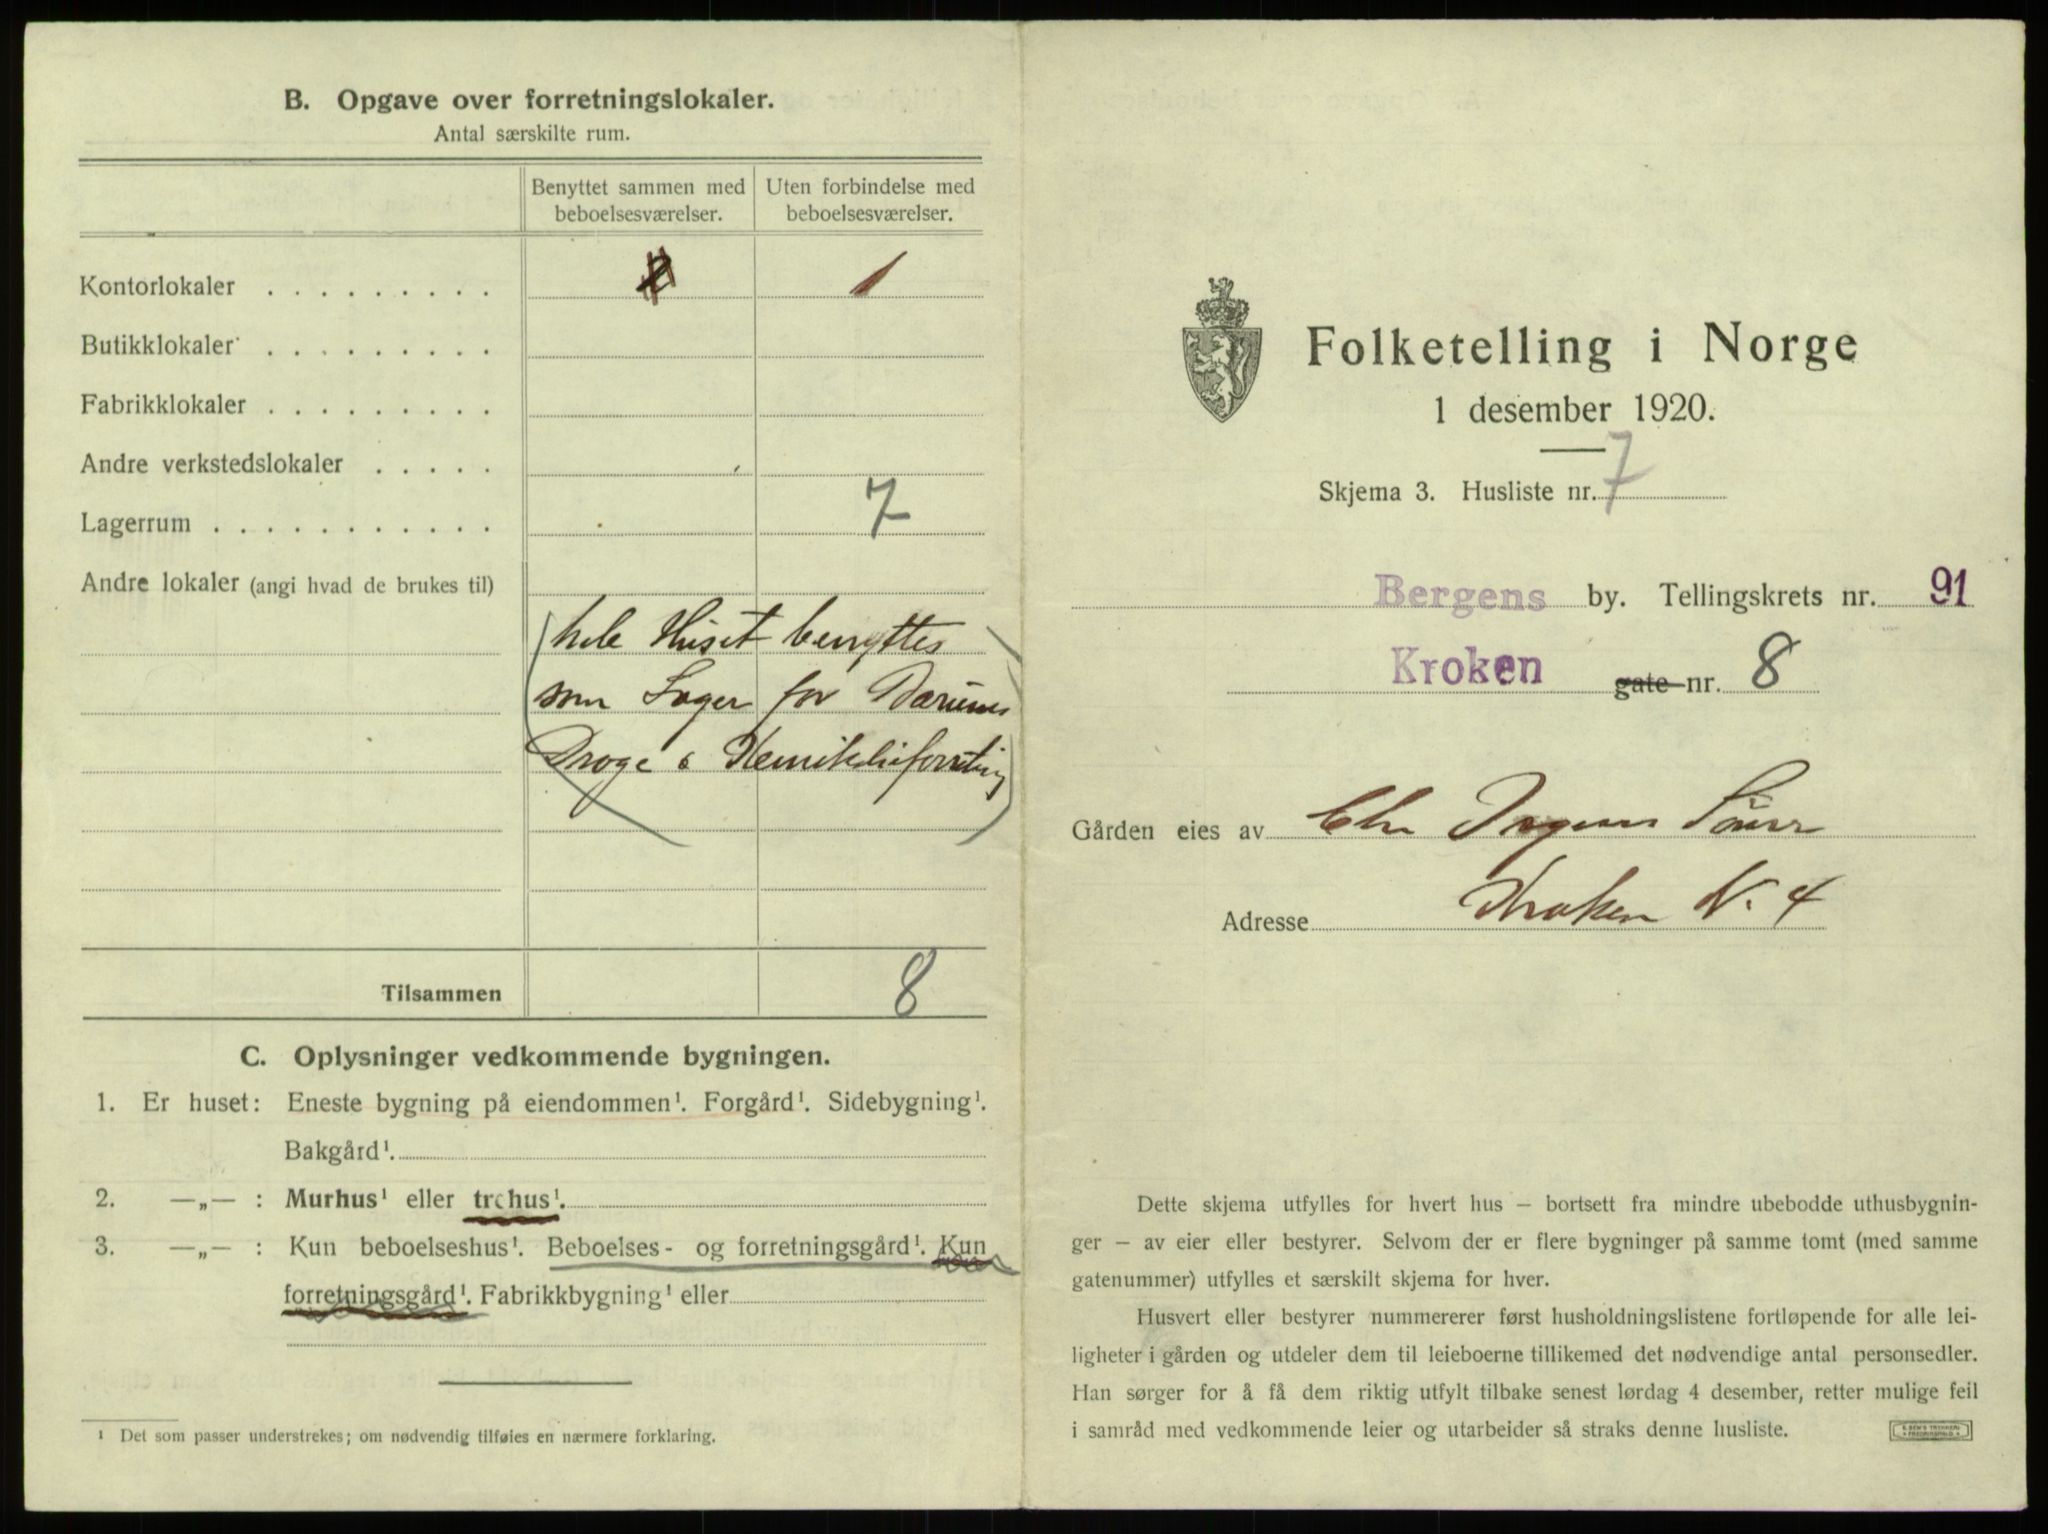 B. Opgave over forretningslokaler.
Antal særskilte rum.
Benyttet sammen med beboelsesværelser.
Uten forbindelse med beboelsesværelser.
Kontorlokaler . . . . . . . . . 1
Butikklokaler . . . . . . . . .
Fabrikklokaler . . . . . . . . .
Andre verkstedslokaler . . . . .
Lagerrum . . . . . . . . . . . 7
Andre lokaler (angi hvad de brukes til)
(hele Huset benyttes
som Lager for
Droge & Kemikalieforretning)
Tilsammen 8
C. Oplysninger vedkommende bygningen.
1. Er huset: Eneste bygning på eiendommen¹. Forgård¹. Sidebygning¹.
Bakgård¹.
2. —„— : Murhus¹ eller trehus¹.
3. —„— : Kun beboelseshus¹. Beboelses- og forretningsgård¹. Kun
forretningsgård¹. Fabrikkbygning¹ eller
¹ Det som passer understrekes; om nødvendig tilføies en nærmere forklaring.
Folketelling i Norge
1 desember 1920.
Skjema 3. Husliste nr. 7
Bergens by. Tellingskrets nr. 91
Kroken gate nr. 8
Gården eies av Chr
Adresse Kroken N. 4
Dette skjema utfylles for hvert hus – bortsett fra mindre ubebodde uthusbygnin-
ger – av eier eller bestyrer. Selvom der er flere bygninger på samme tomt (med samme
gatenummer) utfylles et særskilt skjema for hver.
Husvert eller bestyrer nummererer først husholdningslistene fortløpende for alle lei-
ligheter i gården og utdeler dem til leieboerne tillikemed det nødvendige antal personsedler.
Han sørger for å få dem riktig utfylt tilbake senest lørdag 4 desember, retter mulige feil
i samråd med vedkommende leier og utarbeider så straks denne husliste.